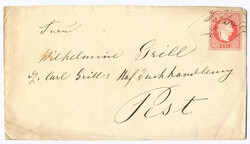 Frau
Wilhelmine Grill
p/. Carl Grill's Hofbuchhandlung
Pest